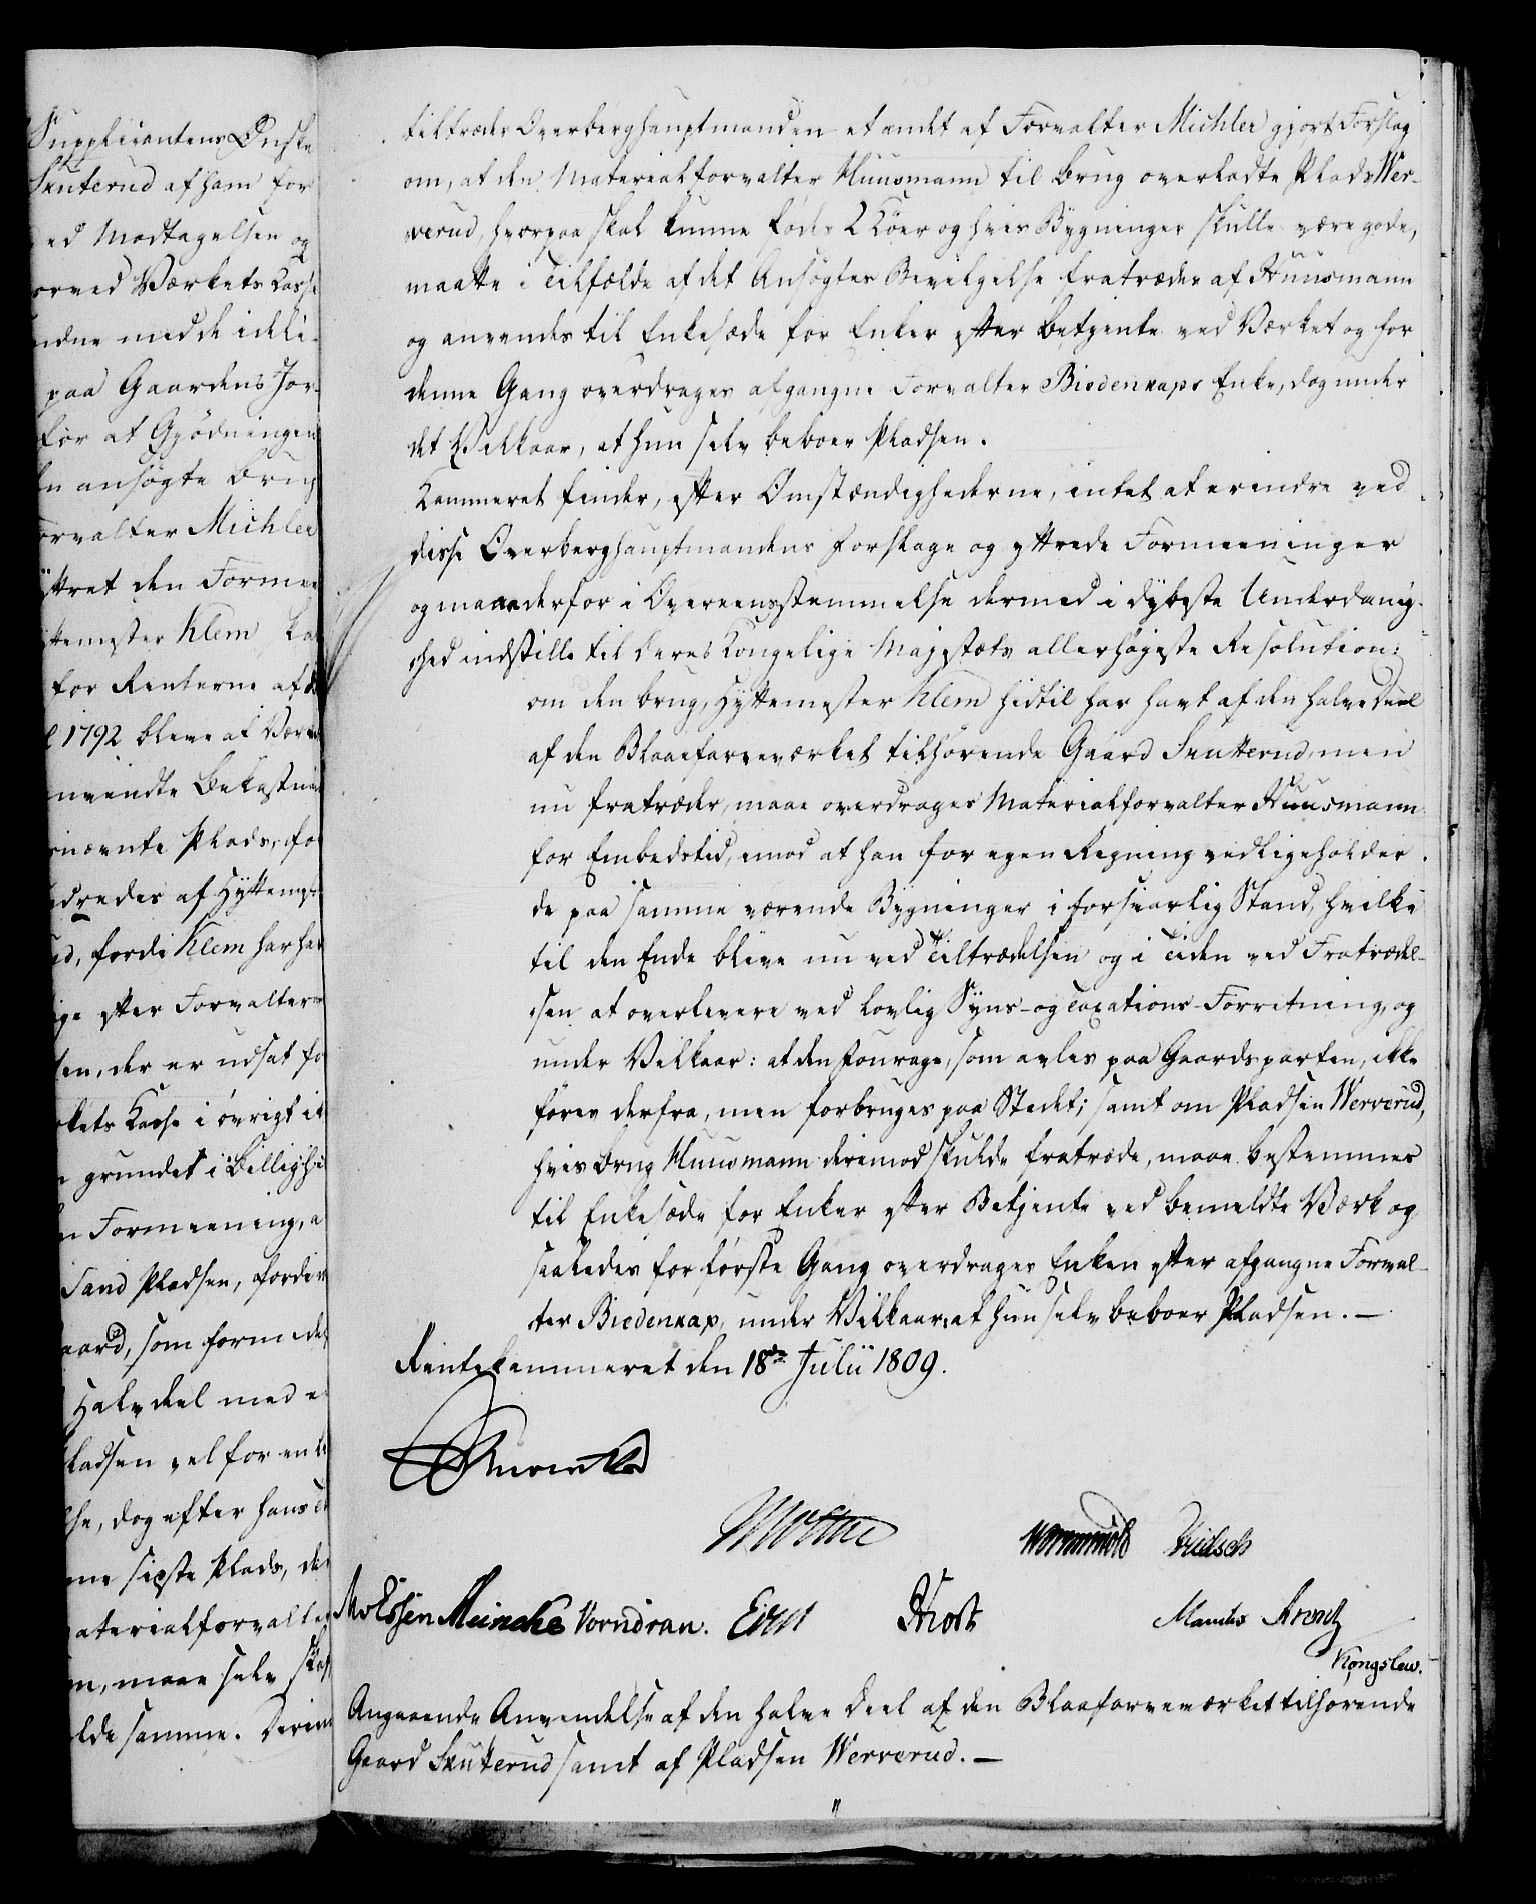 Supplicantens Ønske
Skuterud af ham for
ed Modtagelsen og
orved Værkets Casse
ndne med de ickli-
paa Gaardens Jor-
for at Gjødningen
en ansøgte Brug
orvalter Michler
ttret den Formee
ttemester Klem ka
for Renterne af d
1792 bleve af Vær
nvendte Bekostni
nævnte Plads, fo
edredes af Hyttem
d, fordi Klem har ha
ge efter Forvalter
en, der er udsat fo
kets Kasse i øvrigt i
grundet i Billighe
n Formeening, a
Sand Pladsen, forde
aard, som formede
Halvdeel med e
ladsen vel for en
he, dog efter hans
me sidste Plads, de
aterialforvalte
n, maae selv
lde samme. Derim
tiltræder Overberghauptmanden et andet af Forvalter Michler gjort Forslag
om, at den Materialforvalter Huusmann til Brug overladte Plads Wer-
verud, hvorpaa skal kunne födes 2 Köer og hvis Bygninger skulle være gode,
maatte i Tilfælde af det Ansøgtes Bevilgelse fratrædes af Huusmann
og anvendes til Enkesæde for Enker efter Betjente ved Værket og for
denne Gang overdrages afgangne Forvalter Biedenkaps Enke, dog under
det Vilkaar, at hun selv beboer Pladsen.
Kammeret finder, efter Omstændighederne, intet at erindre ved
disse Overberghauptmandens Forslage og yttrede Formeeninger
og maae derfor i Overeensstemmelse dermed i dybeste Underdanig-
hed indstille til Deres Kongelige Majestæts allerhøjeste Resolution:
om den Brug, Hyttemester Klem hidtil har havt af den halve Deel
af den Blaaefarveværket tilhørende Gaard Skutterud, men
nu fratræder, maae overdrages Materialforvalter Huusmann
for Embedstid, imod at han for egen Regning vedligeholder
de paa samme værende Bygninger i forsvarlig Stand, hvilke
til den Ende blive nu ved Tiltrædelsen og i Tiden ved Fratrædel-
sen at overlevere ved lovlig Syns- og Taxations-Forretning, og
under Vilkaar: at den Fourage, som avles paa Gaardsparten, ikke
føres derfra, men forbruges paa Stedet; samt om Pladsen Werverud,
hvis Brug Huusmann derimod skulde fratræde, maae bestemmes
til Enkesæde for Enker efter Betjente ved bemeldte Værk og
saaledes for første Gang overdrages Enken efter afgangne Forval-
ter Biedenkap, under Vilkaar, at hun selv beboer Pladsen. —
Rentekammeret den 18de Julii 1809.
Wormskiold
MvEssen Meincke Vorndran. Host
Manthe Arentz
Kongslew.
Angaaende Anvendelse af den halve Deel af den Blaafarveværket tilhørende
Gaard Skutterud samt af Pladsen Werverud. —